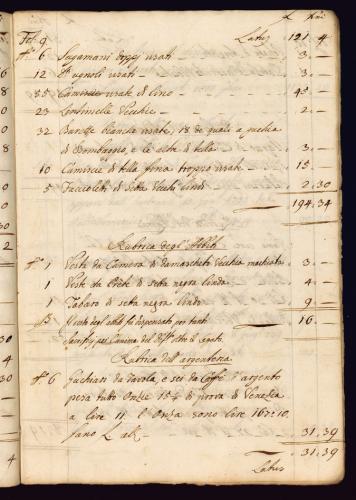 L Kni
Fol. 9 Latus 121. 4
No 6 Sugamani doppj usati 3.—
12 Do ugnoli usati
35 Camicie usate di lino 45—
23 Lentinelle Vecchie 2.—
32 Barette bianche usate, 18 de quali a guchia
di Bombagio, e le altre di tella 3.—
10 Camicie di tella fina troppo usate 15.—
5 Faccioletti di Seta Vecchi lindi 2.30
194.34
Rubrica degl' Abbiti
No 1 Veste da Camera di Damaschetto Vecchia 3.—
1 Veste da Prete di seta negra linda 4.—
1 Tabaro di seta negra lindo 9—
16.—
degl' abbiti fu dispensato per
per l'anima del
Rubrica dell' argenteria
No 6 guchiari da Tavola, e sei da Caffè d'argento
pesa tutto Onze 15 di prova di Venezia
a Lire 11 l'Onza sono Lire 167:10.
fano L 31.39
31.39
Latus